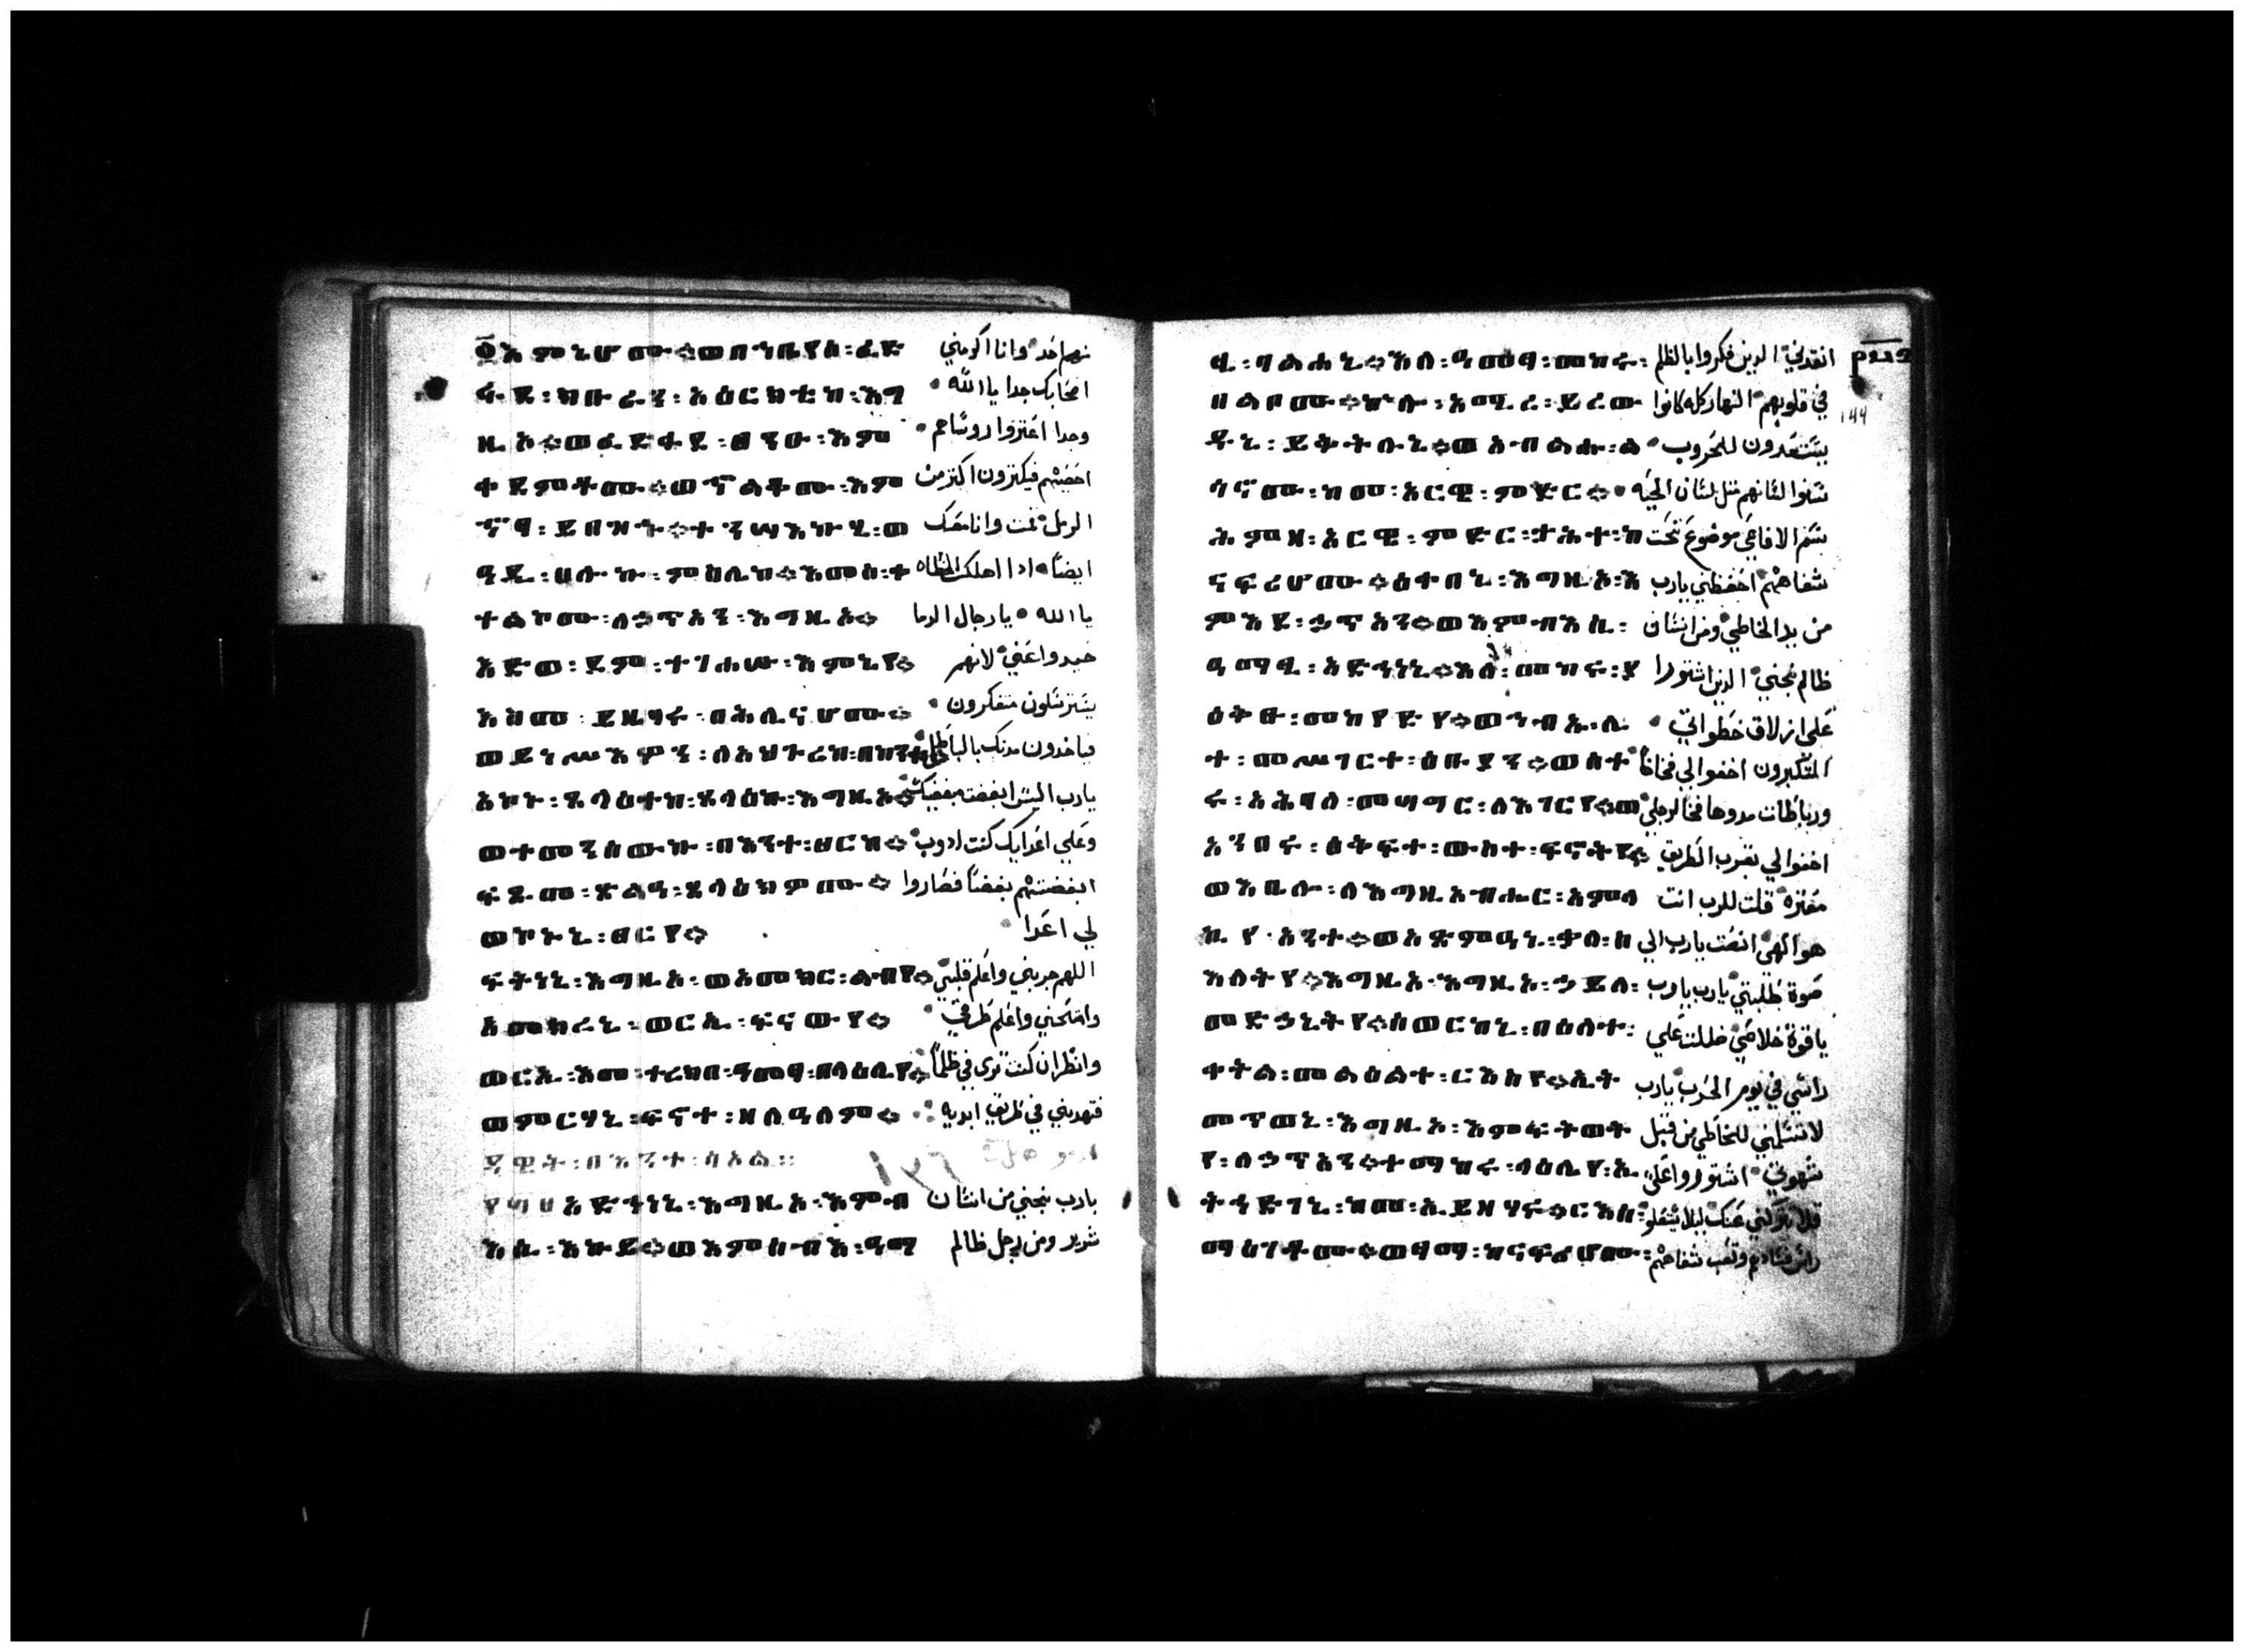 እምኔሆሙ ። ወበኀቤየሰ ፡ ፈድ نهم احد وانا اكرمني
ፋደ ፡ ክቡራን ፡ አዕርክቲከ ፡ እግ اصحابك جدا يا الله
ዚኦ ። ወፈድፋደ ፡ ጸንዑ ፡ እም وجدا اعتزوا روساهم
ቀደምቶሙ ። ወኍልቆሙ ፡ እም احصيتهم فيكترون اكتر من
ኆጻ ፡ ይበዝኁ ። ተንሣእኩኒ ፡ ወ الرمل قمت وانا معك
ዓዲ ፡ ሀሎኩ ፡ ምስሌከ ። እመሰ ፡ ቀ ايضا ادا اهلكت الخطاه
ተልኮሙ ፡ ለኃጥአን ፡ እግዚኦ ። يا الله يا رجال الدما
ዕድወ ፡ ደም ፡ ተገሐሡ ፡ እምኔየ ። حيدوا عني لانهم
እስመ ፡ ይዜኀሩ ፡ በሕሊናሆሙ ። متفكرون
ወይነሥእዎን ፡ ለአህጉሪከ ፡ በከንቱ ። فياخدون مدنك بالباطل
አኮኑ ፡ ጸላእተከ ፡ ጸላእኩ ፡ እግዚኦ ። يارب اليس ابغضت مبغضيك
ወተመንሰውኩ ፡ በእንተ ፡ ፀርከ ። وعلي اعدايك كنت ادوب
ፍጹመ ፡ ጽልዓ ፡ ጸላእክዎሙ ። ابغضتهم بغضا فصاروا
ወኮኑኒ ፡ ፀርየ ። لي اعدا
ፍትነኒ ፡ እግዚኦ ፡ ወአመክር ፡ ልብየ ። اللهم جربني واعلم قلبي
አመክረኒ ፡ ወርኢ ፡ ፍናውየ ። وامتحني واعلم طرقي
ወርኢ ፡ እመ ፡ ተረክበ ፡ ዓመፃ ፡ በላዕሌየ ። وانظر ان كنت ترى في ظلما
ወምርሃኒ ፡ ፍኖተ ፡ ዘለዓለም ። فتهديني في طريق ابديه
ዳዊት ፡ በእንተ ፡ ሳኦል ።
አድኅነኒ ፡ እግዚኦ ፡ እምብ يارب نجني من انسان
እሲ ፡ እኩይ ። ወእምሰብእ ፡ ዓማ شرير ومن رجل ظالم
ፂ ፡ ባልሐኒ ። እለ ፡ ዓመፃ ፡ መከሩ ፡ انقدني الدين فكروا بالظلم
በልቦሙ ። ኵሎ ፡ አሚረ ፡ ይረው في قلوبهم النهار كله كانوا
ዱኒ ፡ ይቅትሉኒ ። ወአብልሑ ፡ ል يستعدون للحروب
ሳኖሙ ፡ ከመ ፡ አርዌ ፡ ምድር ። سنوا لسانهم متل لسان الحيه
ሕምዘ ፡ አርዌ ፡ ምድር ፡ ታሕተ ፡ ከ سم الافاعي موضوع تحت
ናፍሪሆሙ ። ዕቀበኒ ፡ እግዚኦ ፡ እ شفاههم احفظني يارب
ምእደ ፡ ኃጥአን ። ወእምብእሲ ፡ من يد الخاطي ومن انسان
ዓማፂ ፡ አድኅነኒ ። እለ ፡ መከሩ ፡ ያ ظالم نجني الدين اشتوروا
ዕቅፁ ፡ መከየድየ ። ወኀብኡ ፡ ሊ علي ازلاق خطواتي
ተ ፡ መሥገርተ ፡ ዕቡያን ። ወሰተ المتكبرون اخفوا لي فخاخا
ሩ ፡ አሕባለ ፡ መሣግር ፡ ለእገርየ ። ወ ورباطات مدوها فخا لرجلي
አንበሩ ፡ ዕቅፍተ ፡ ውስተ ፡ ፍኖትየ ። اخفوا لي بقرب الطريق
ወእቤሎ ፡ ለእግዚአብሔር ፡ አምላ معترة قلت للرب انت
ኪየ ፡ አንተ ። ወአፅምዓኒ ፡ ቃለ ፡ ስ هو الهي انصت يارب الي
እለትየ ። እግዚኦ ፡ እግዚኦ ፡ ኃይለ ፡ صوة طلبتي يارب يارب
መድኃኒትየ ። ሰወርከኒ ፡ በዕለተ ፡ يا قوة خلاصي ظللت علي
ቀትል ፡ መልዕልተ ፡ ርእስየ ። ኢት راسي في يوم الحرب يارب
መጥወኒ ፡ እግዚኦ ፡ እምፍትወት لا تسلمني للخاطي من قبل
የ ፡ ለኃጥአን ። ተማከሩ ፡ ላዕሌየ ፡ ኢ شهوتي اشتوروا علي
ትኅድገኒ ፡ ከመ ፡ ኢይዘሃሩ ። ርእሰ ፡ فلا تتركني عنك ليلا
ማዕገቶሙ ። ወፃማ ፡ ከናፍሪሆሙ ፡ وتعب شفاههم
144